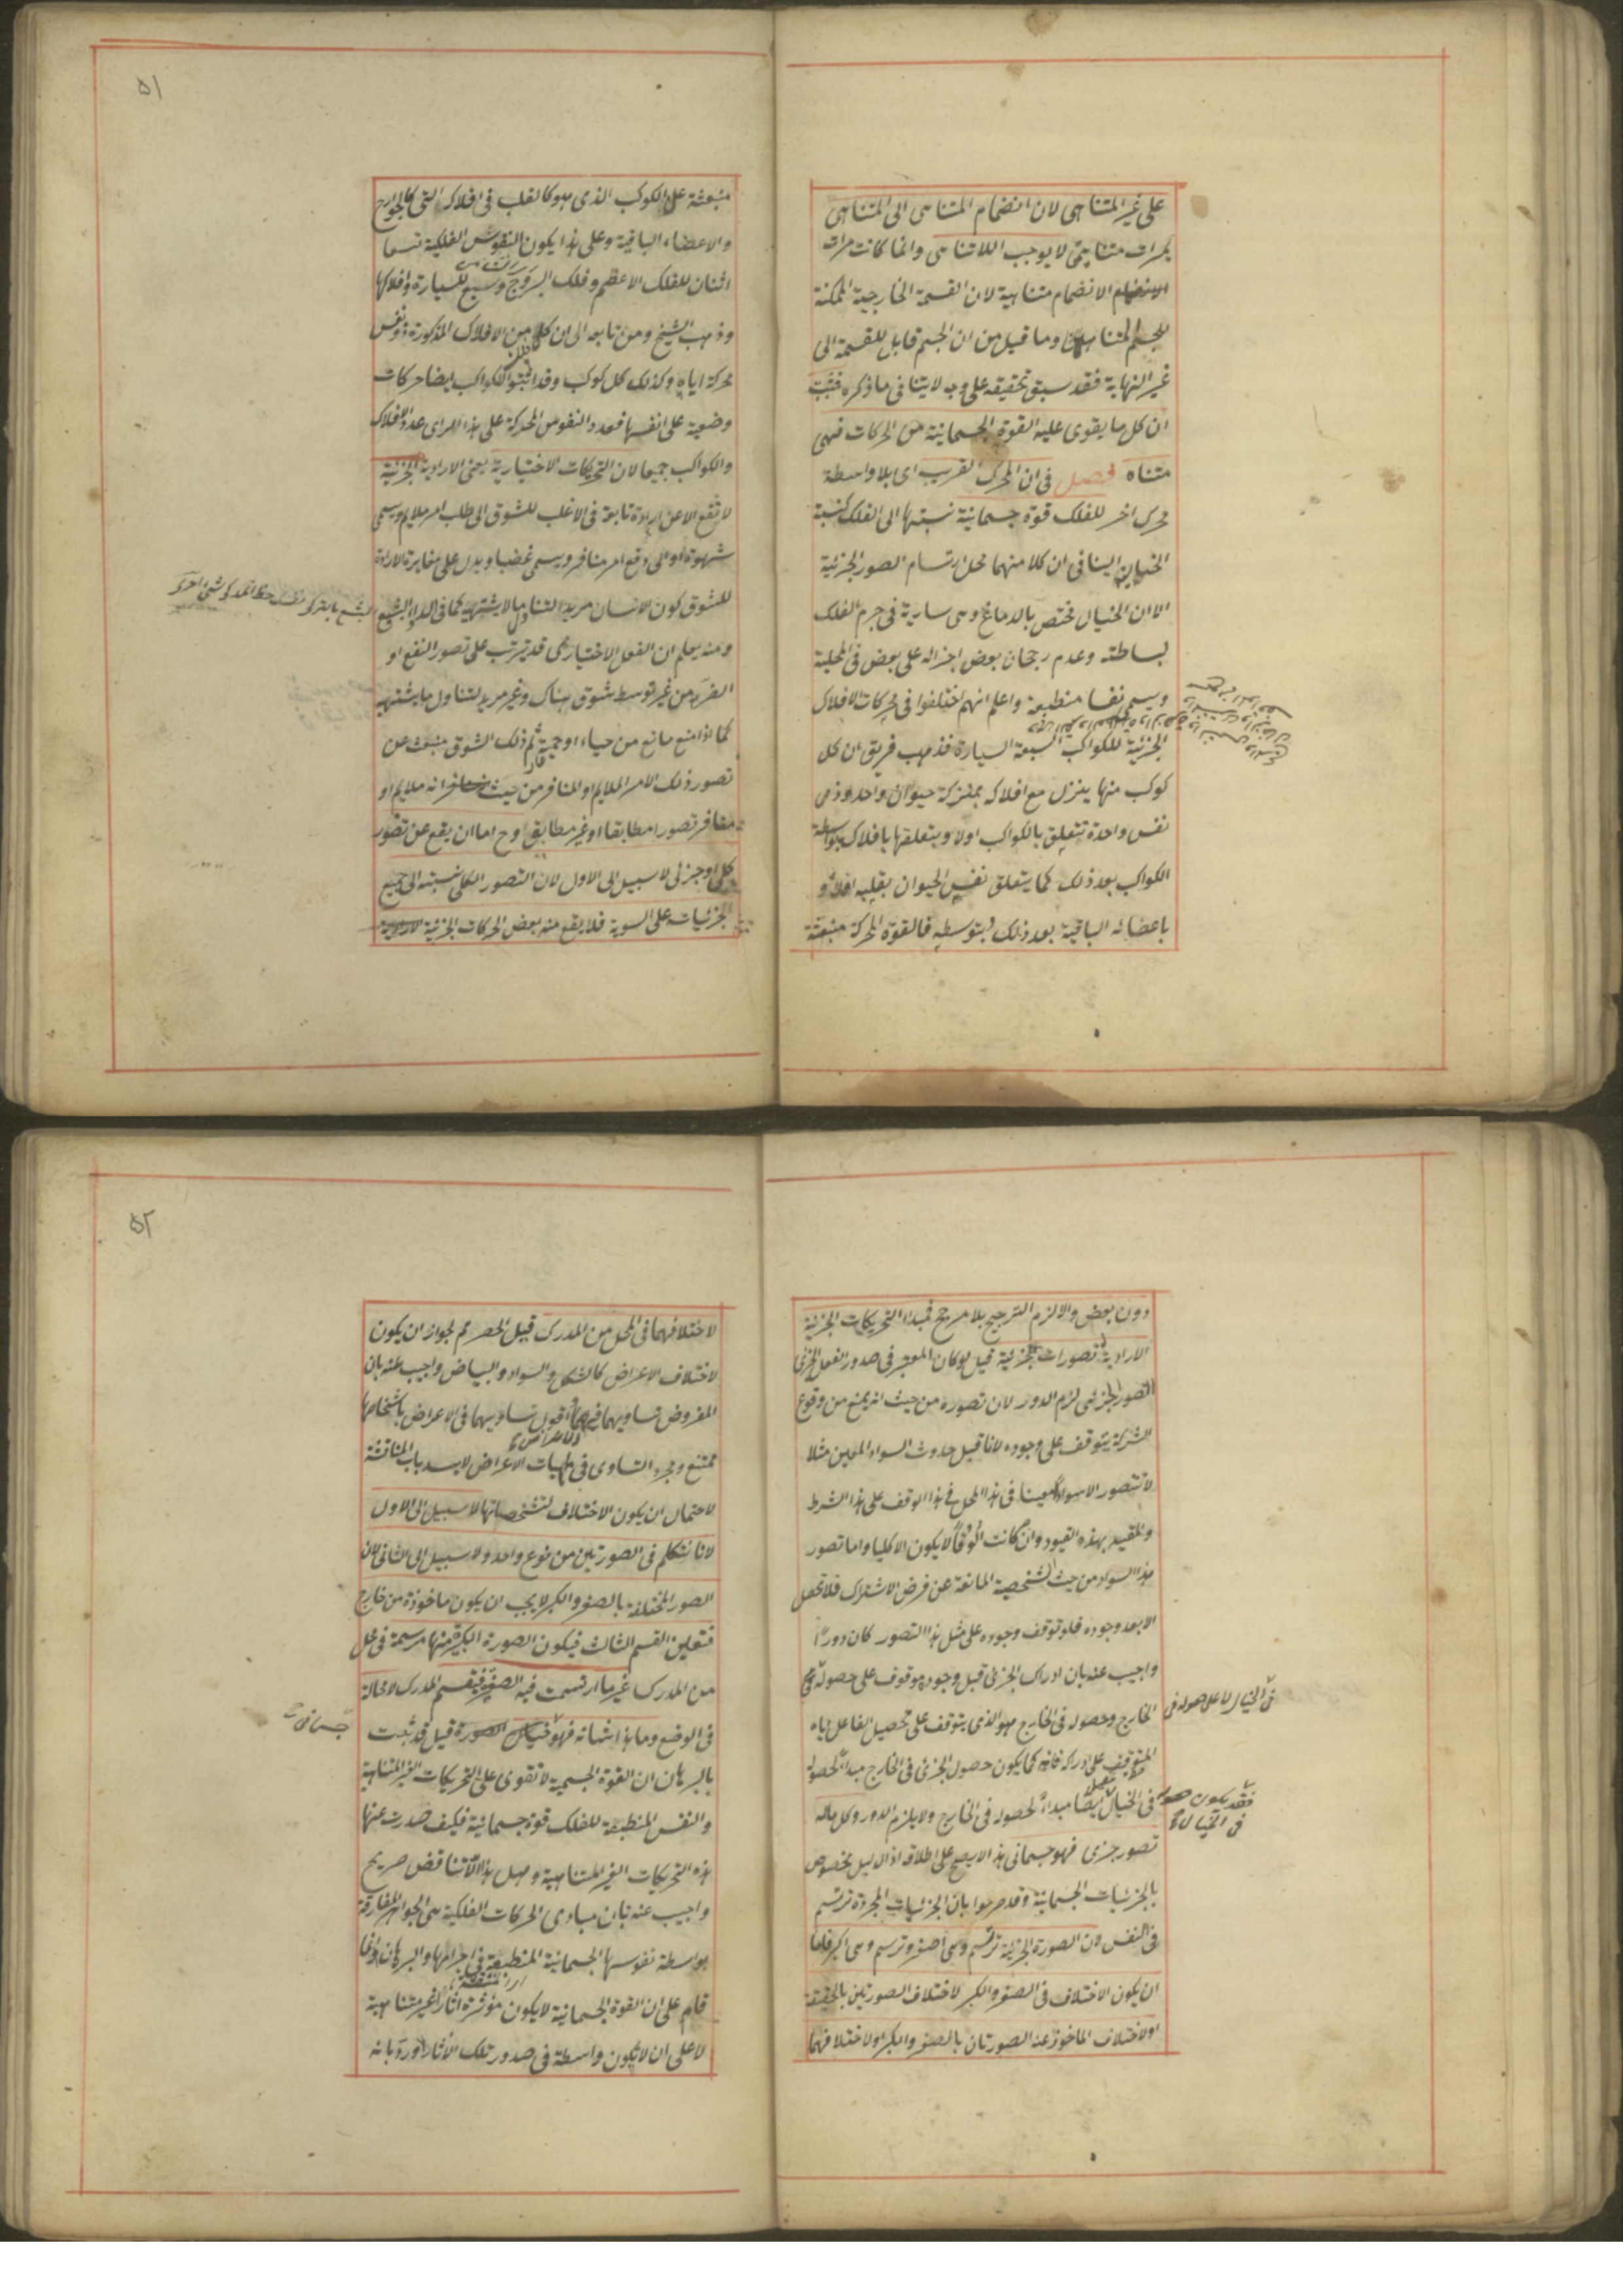 على غير المتناهى لان انضمام المتناهى الى المتناهى
بمرات متناهية لا يوجب اللاتناهى وانما كانت مرات
الانضمام متناهية لان القسمة الخارجية الممكنة
للجسم المتناهى وما قيل من ان الجسم قابل للقسمة الى
غير النهاية فقد سبق تحقيقه على وجه لا ينافى ما ذكره فثبت
ان كل ما يقوى عليه القوة الجسمانية من الحركات فهى
متناه فصل فى ان المحرك القريب اى بلا واسطة
محرك اخر للفلك قوة جسمانية نسبتها الى الفلك كنسبة
الخيال الينا فى ان كلا منهما محل ارتسام الصور الجزئية
الا ان الخيال مختص بالدماغ وهى سارية فى جرم الفلك
لبساطته وعدم رجحان بعض اجزائه على بعض فى المحلية
ويسمى نفسا منطبعة واعلم انهم اختلفوا فى محركات الافلاك
الجزئية للكواكب السبعة السيارة فذهب فريق ان كل
كوكب منها ينزل مع افلاكه بمنزلة حيوان واحد ذى
نفس واحدة تتعلق بالكواكب اولا وبتعلقها بافلاكه بواسطة
الكواكب بعد ذلك كما يتعلق نفس الحيوان بقلبه اولا و
باعضائه الباقية بعد ذلك بتوسطه فالقوة المحركة منبعثة
۵۱
منبعثة عن الكوكب الذى هو كالقلب فى افلاكه التى كالجوارح
والاعضاء الباقية وعلى هذا يكون النفوس الفلكية تسعا
اثنان للفلك الاعظم وفلك البروج وسبع للسيارة وافلاكها
وذهب الشيخ ومن تابعه الى ان كلا من الافلاك المذكورة ذو نفس
محركة اياه وكذلك كل كوكب وقد اثبتوا للكواكب ايضا حركات
وضعية على انفسها فعدد النفوس المحركة على هذا الراى عدد الافلاك
والكواكب جميعا لان التحريكات الاختيارية يعنى الارادية الجزئية
لا تقع الا عن ارادة تابعة فى الاغلب للشوق الى طلب امر ملايم ويسمى
شهوة او الى دفع امر منافر ويسمى غضبا ويدل على مغايرة الارادة
للشوق كون الانسان مريدا لتناول ما لا يشتهيه كما فى الدواء البشيع
ومنه يعلم ان الفعل الاختيارى قد يترتب على تصور النفع او
الضر من غير توسط شوق هناك وغير مريد لتناول ما يشتهيه
كما اذا منع مانع من حياء او حمية ثم ذلك الشوق منبعث عن
تصور ذلك الامر الملايم او المنافر من حيث انه ملايم او
منافر تصورا مطابقا او غير مطابق وح اما ان يقع عن تصور
كلى او جزئى لا سبيل الى الاول لان التصور الكلى نسبته الى جميع
الجزئيات على السوية فلا يقع منه بعض الحركات الجزئية
دون بعض والا لزم الترجيح بلا مرجح فمبدا التحريكات الجزئية
الارادية تصورات جزئية قيل لو كان المعتبر فى صدور الفعل الجزئى
التصور الجزئى لزم الدور لان تصوره من حيث انه يمنع من وقوع
الشركة يتوقف على وجوده لانا قبل حدوث السواد المعين مثلا
لا نتصور الا سوادا معينا فى هذا المحل فى هذا الوقت على هذا الشرط
والمقيد بهذه القيود وان كانت الوفا لا يكون الا كليا واما تصور
هذا السواد من حيث الشخصية المانعة عن فرض الاشتراك فلا تحصل
الا بعد وجوده فلو توقف وجوده على مثل هذا التصور كان دورا
واجيب عنه بان ادراك الجزئى قبل وجوده موقوف على حصوله
فى الخيال لا على حصوله فى
الخارج وحصوله فى الخارج هو الذى يتوقف على تحصيل الفاعل اياه
المتوقف على ادراكه فانه كما يكون حصول الجزئى فى الخارج مبدأ لحصوله
فى الخيال ايضا مبدأ لحصوله فى الخارج ولا يلزم الدور وكل ماله
فقد يكون حصوله
فى الخيال
تصور جزئى فهو جسمانى هذا لا يصح على اطلاقه اذ الدليل مخصوص
بالجزئيات الجسمانية وقد صرحوا بان الجزئيات المجردة ترتسم
فى النفس لان الصورة الجزئية ترتسم وهى اصغر وترسم وهى اكبر فاما
ان يكون الاختلاف فى الصغر والكبر لاختلاف الصورتين بالحقيقة
او لاختلاف الماخوذ عنه الصورتان بالصغر والكبر او لاختلافهما
۵۲
لاختلافهما فى المحل من المدرك قيل الحصر مم لجواز ان يكون
لاختلاف الاعراض كالشكل والسواد والبياض واجيب عنه بان
المفروض تساويهما فيها اقول تساويهما فى الاعراض باشخاصها
ممتنع ومجرد التساوى فى ماهيات الاعراض لا يسد باب المناقشة
لاحتمال ان يكون الاختلاف لتشخصاتها لا سبيل الى الاول
لانا نتكلم فى الصورتين من نوع واحد ولا سبيل الى الثانى لان
الصور المختلفة بالصغر والكبر لا يجب ان يكون ماخوذة من خارج
فتعين القسم الثالث فيكون الصورة الكبيرة منها مرتسمة فى محل
من المدرك غير ما ارتسمت فيه الصغيرة فينقسم المدرك لا محالة
فى الوضع وما هذا شانه فهو جسمانى قيل قد ثبت
بالبرهان ان القوة الجسمية لا تقوى على التحريكات الغير المتناهية
والنفس المنطبعة للفلك قوة جسمانية فكيف صدرت عنها
هذه التحريكات الغير المتناهية وهل هذا الا تناقض صريح
واجيب عنه بان مبادى الحركات الفلكية هى الجواهر المفارقة
بواسطة نفوسها الجسمانية المنطبعة فى اجرامها والبرهان انما
قام على ان القوة الجسمانية لا يكون مؤثرة اثارا غير متناهية
لا على ان لا يكون واسطة فى صدور تلك الاثار اورد بانه